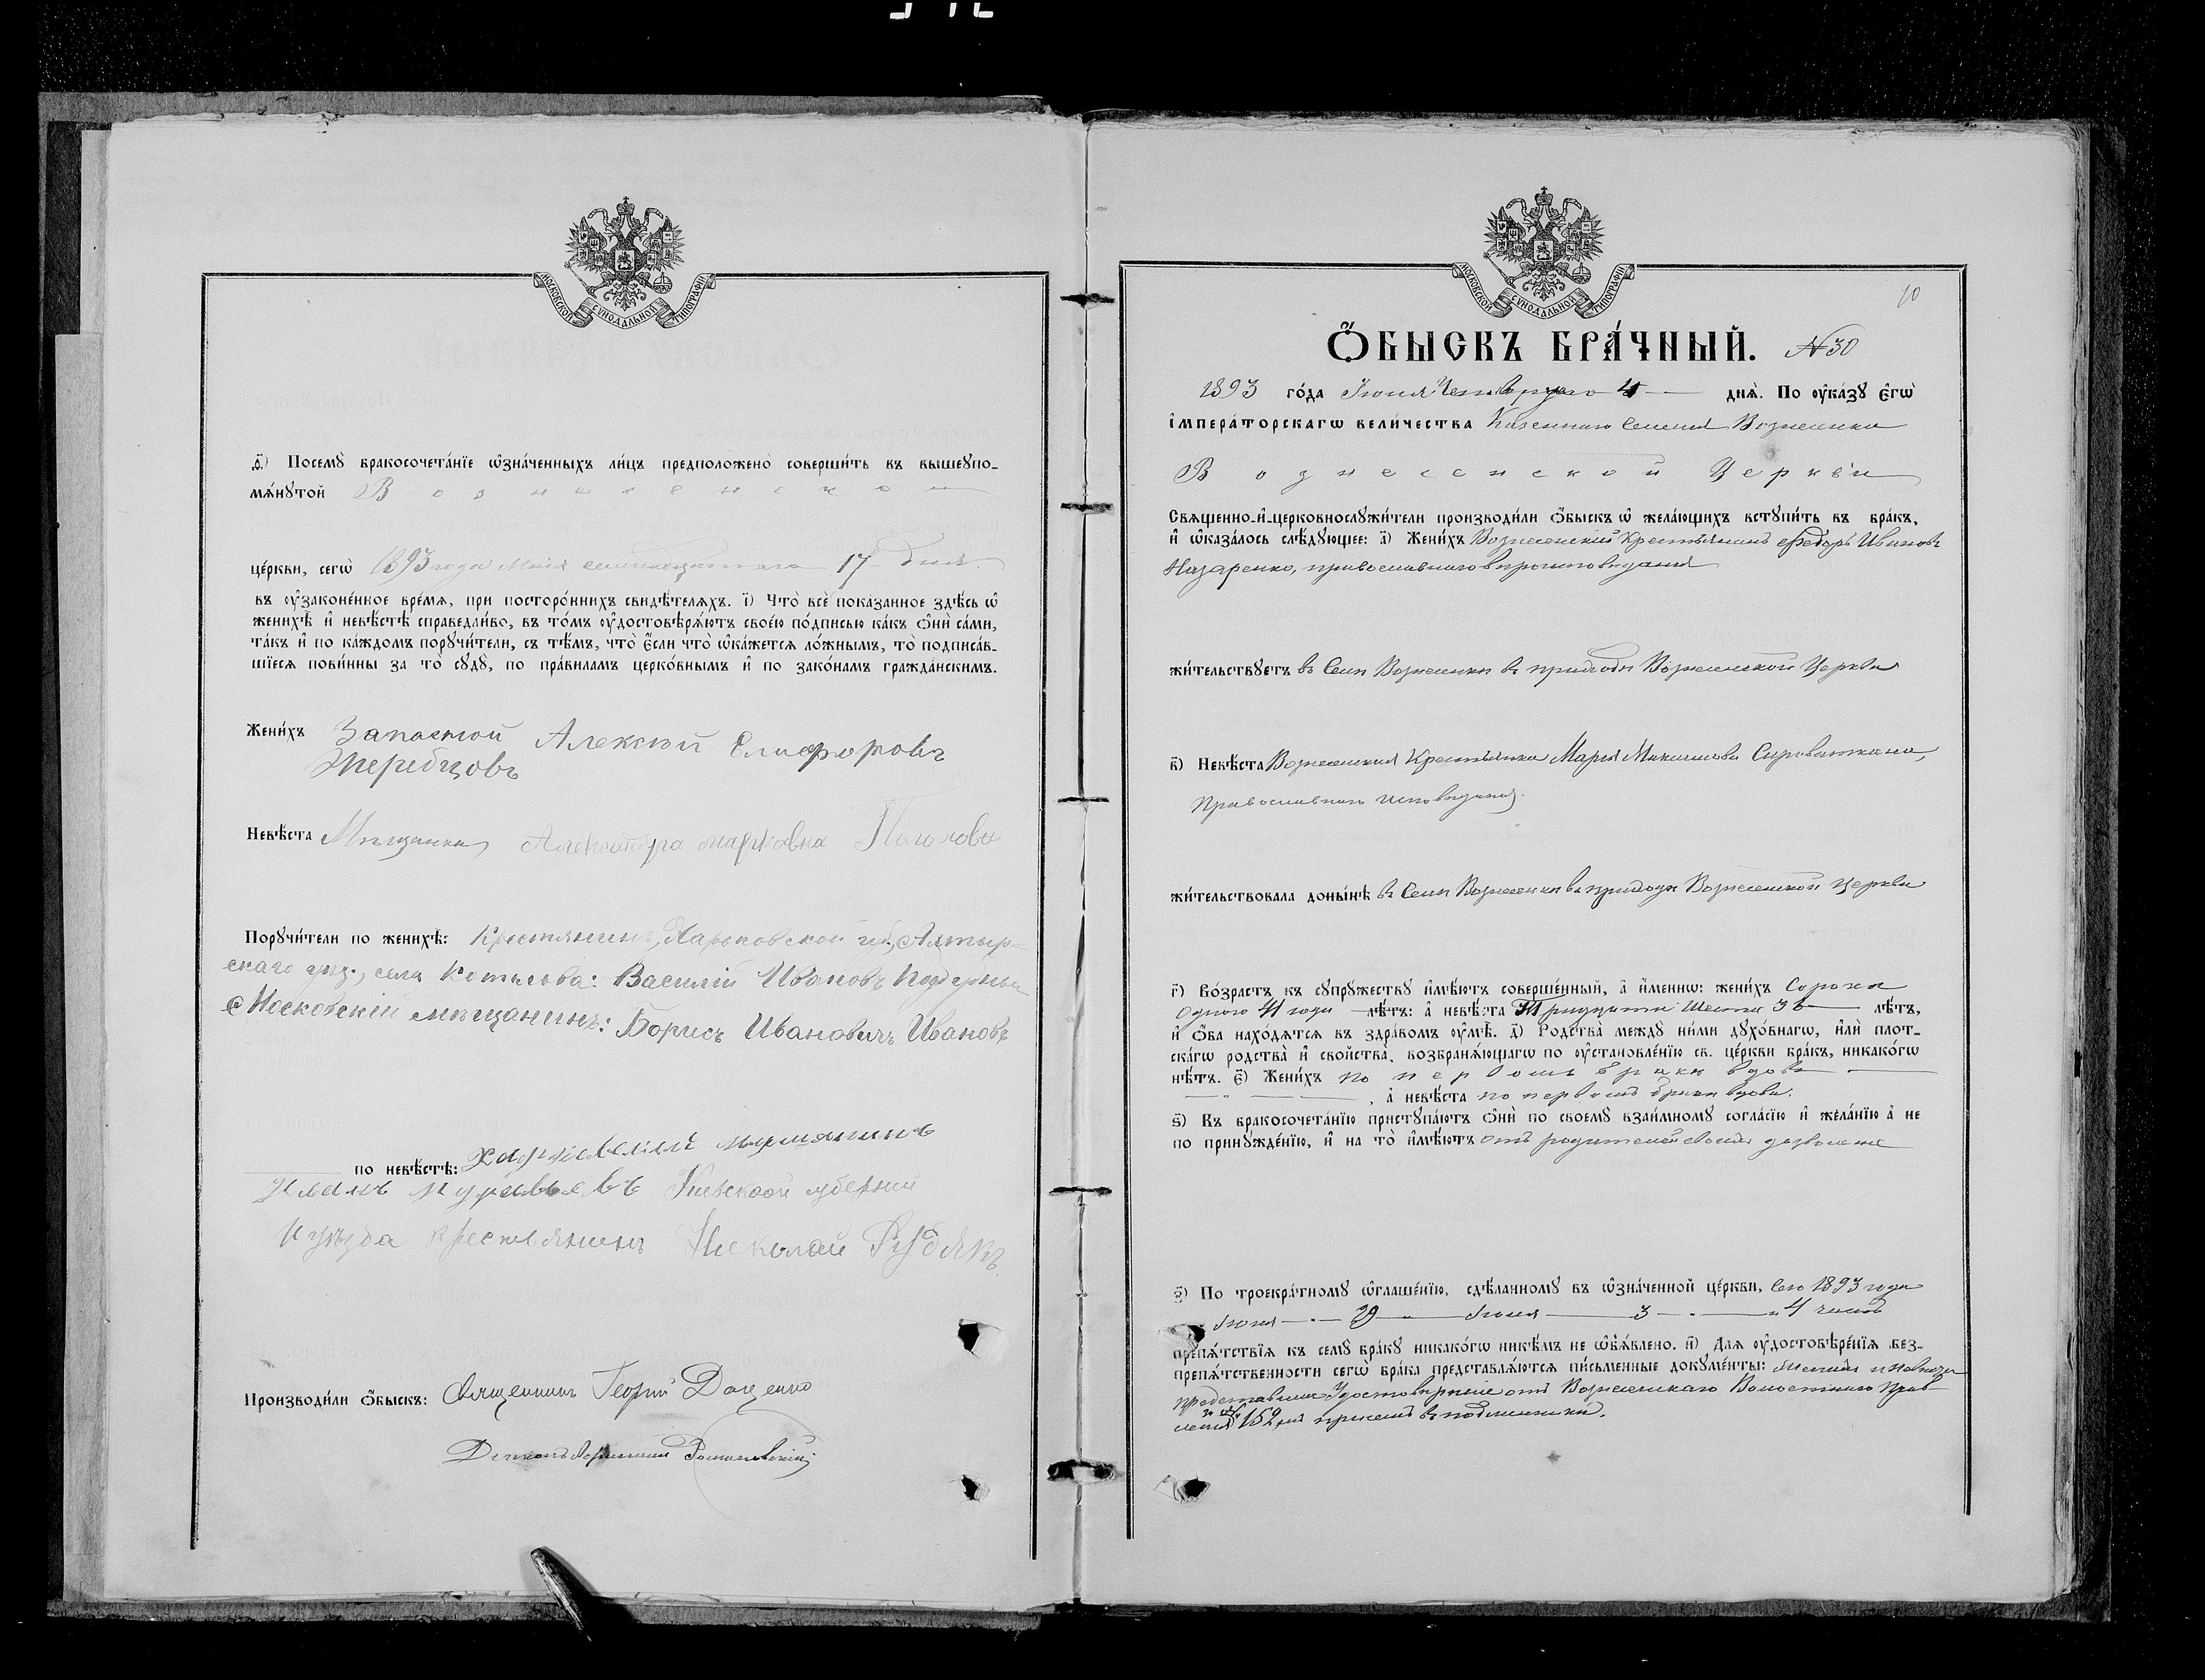 МОСКОВСКОЙ СѴНОДАЛЬНОЙ ТИПОГРАФІИ
Ѳ҃) Посемꙋ̀ бракосочета́нїе ѡ҆зна́ченныхъ ли́цъ предположено̀ соверши́ть въ вышеꙋпо-
мѧ́нꙋтой Вознесенской
це́ркви, сегѡ̀ 1893 года Мая семнадцатаго 17 дня.
въ ᲂу҆законе́нное вре́мѧ, при посторо́ннихъ свидѣ́телѧхъ. І҃) Что̀ всѐ пока́занное здѣ́сь ѡ҆
женихѣ̀ и҆ невѣ́стѣ справедли́во, въ то́мъ ᲂу҆достовѣрѧ́ютъ свое́ю по́дписью ка́къ ѻ҆нѝ са́ми,
та́къ и҆ по ка́ждомъ порꙋчи́тели, съ тѣ́мъ, что̀ є҆́сли что̀ ѡ҆ка́жетсѧ ло́жнымъ, то̀ подписа́в-
шїесѧ пови́нны за то̀ сꙋдꙋ̀, по пра́виламъ церко́внымъ и҆ по зако́намъ гражда́нскимъ.
Жени́хъ Запасной Алексѣй Елифоровъ
Жеребцовъ
Невѣ́ста Мѣщанка, Александра Марковна
Порꙋчи́тели по женихѣ̀: Крестянинъ, Харьковской губ., Ахтыр-
скаго уѣз., села Котельва: Василій Ивановъ
Московскій мѣщанинъ: Борисъ Ивановичъ Ивановъ
по невѣ́стѣ: Харьковскій мѣщанинъ
Иванъ Муравьевъ Кіевской губерніи
уѣзда крестьянинъ Николай Рудякъ
Производи́ли ѻ҆́быскъ: Священникъ Георгій Даценко
Діаконъ
МОСКОВСКОЙ СѴНОДАЛЬНОЙ ТИПОГРАФІИ
10
Ѻ҆́БЫСКЪ БРА́ЧНЫЙ. №30
1893 го́да Іюня Четвертаго 4 днѧ̀. По ᲂу҆ка́зꙋ є҆гѡ̀
і҆мпера́торскагѡ вели́чества Казеннаго Селенія Вознесенки
Вознесенской Церкви
Свѧще́нно-и҆-церковнослꙋжи́тели производи́ли ѻ҆́быскъ ѡ҆ жела́ющихъ встꙋпи́ть въ бра́къ,
и҆ ѡ҆каза́лось слѣ́дꙋющее: а҃) Жени́хъ Вознесенскій Крестьянинъ Федоръ Ивановъ
Назаренко, православнаго вѣроисповѣданія
жи́тельствꙋетъ въ Селѣ Вознесенки въ приходѣ Вознесенской Церкви
в҃) Невѣ́ста Вознесенская Крестьянка Марія Максимова Сыроваткина,
Православнаго исповѣданія.
жи́тельствовала доны́нѣ въ Селѣ Вознесенки въ приходѣ Вознесенской Церкви
г҃) Во́зрастъ къ сꙋпрꙋ́жествꙋ и҆мѣ́ютъ соверше́нный, а҆ и҆́меннѡ: жени́хъ Сорокъ
Одного 41 года лѣ́тъ: а҆ невѣ́ста Тридцати Шести 36 лѣ́тъ,
и҆ ѻ҆́ба нахо́дѧтсѧ въ здра́вомъ ᲂу҆мѣ̀. д҃) Родства̀ междꙋ̀ ни́ми дꙋхо́внагѡ, и҆лѝ плот-
ска́гѡ родства̀ и҆ свойства̀, возбранѧ́ющагѡ по ᲂу҆становле́нїю св. це́ркви бра́къ, никако́гѡ
нѣ́тъ. є҃) Жени́хъ по первомъ бракѣ вдовъ
, а҆ невѣ́ста по первомъ бракѣ вдова.
ѕ҃) Къ бракосочета́нїю пристꙋпа́ютъ ѻ҆нѝ по своемꙋ̀ взаи́мномꙋ согла́сїю и҆ жела́нїю а҆ не
по принꙋжде́нїю, и҆ на то̀ и҆мѣ́ютъ отъ родителей своихъ дозволеніе
з҃) По троекра́тномꙋ ѡ҆глаше́нїю, сдѣ́ланномꙋ въ ѡ҆зна́ченной це́ркви, сего 1893 года
Іюня 3 и 4 чиселъ
препѧ́тствїѧ къ семꙋ̀ бра́кꙋ никако́гѡ никѣ́мъ не ѡ҆б̾ѧ́влено. и҃) Длѧ ᲂу҆достовѣре́нїѧ без-
препѧ́тственности сегѡ̀ бра́ка представлѧ́ютсѧ пи́сьменные докꙋме́нты: Женихъ и Невеста
представили Удостовѣреніе отъ Вознесенскаго Волостнаго Прав-
ленія за № 152,